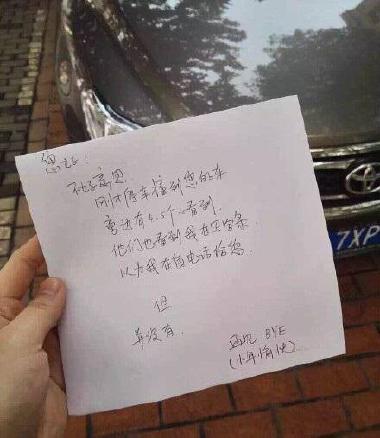 您好:
不好意思
刚才停车撞到您的车
旁边有4.5个人看到
他们也看到我在写字条
以为我在留电话给您
但
并没有.
祝 BYE
(十年愉快)
TOYOTA
7XP